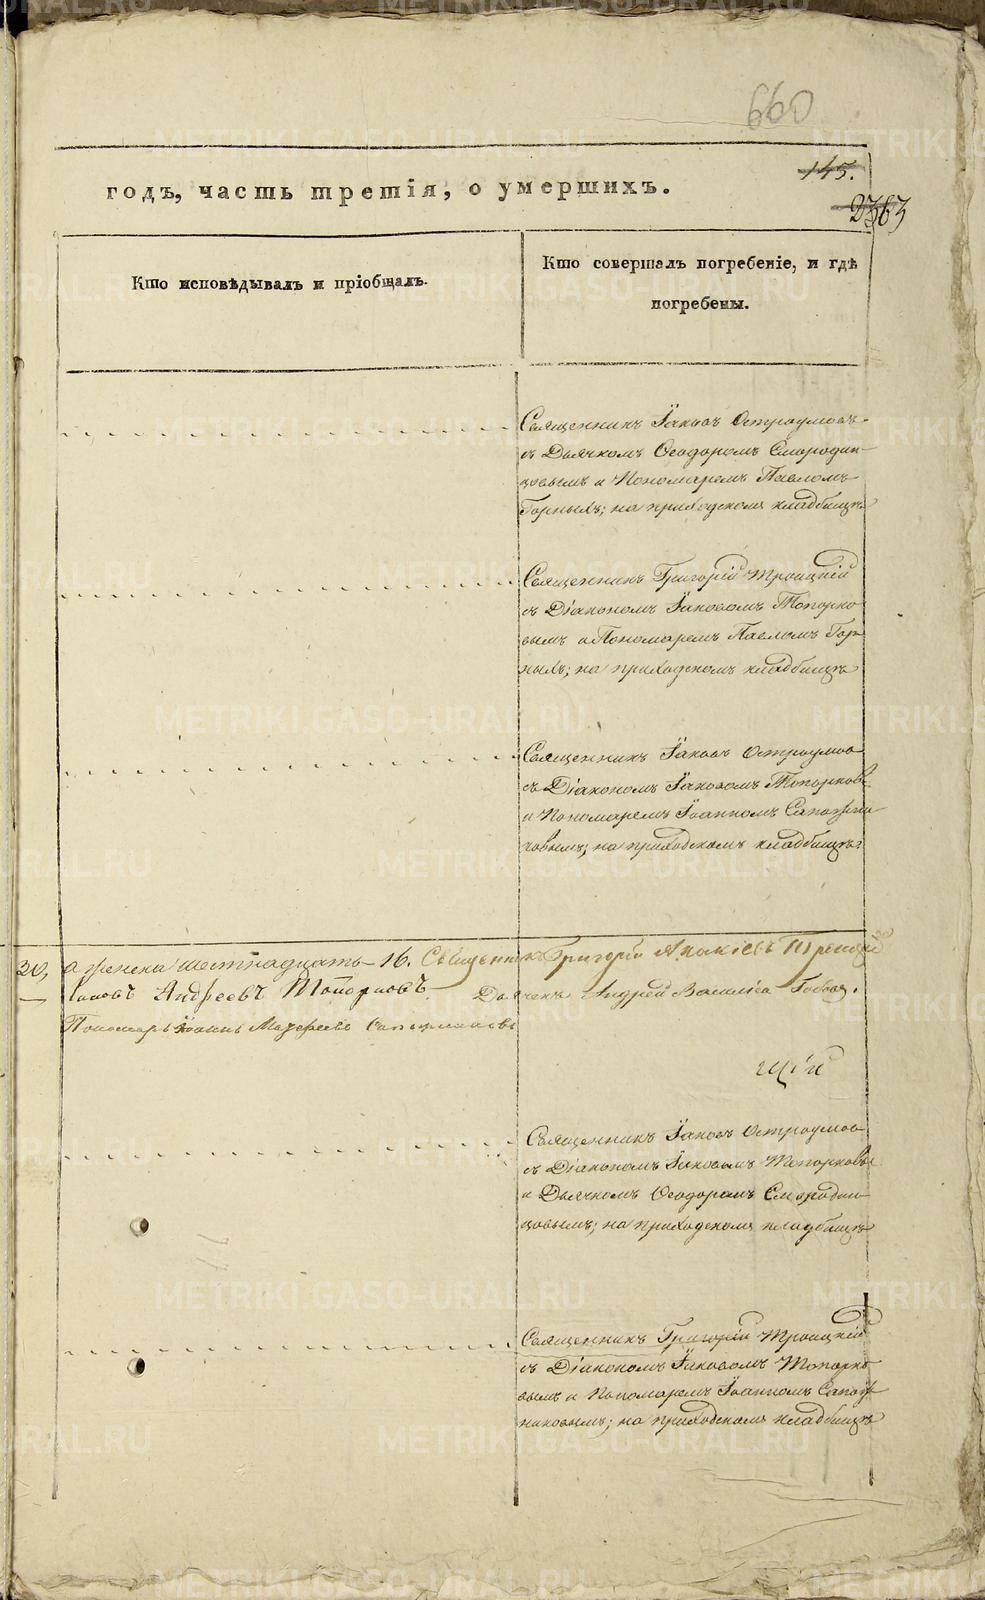 660
145.
2363
годъ, часть третія, о умершихъ.
Кто исповѣдывалъ и пріобщалъ.
Кто совершалъ погребеніе, и гдѣ
погребены.
Священникъ Іаковъ Остроумовъ
съ Дьячкомъ Ѳеодоромъ Смородин-
цовымъ и Пономаремъ Павломъ
Горныхъ; на приходскомъ кладбищѣ
Священникъ Григорій Троицкій
съ Діакономъ Іаковомъ Топорко
вымъ и Пономаремъ Павломъ Гор
ныхъ; на приходскомъ кладбищѣ
Священникъ Іаковъ Остроумовъ
съ Діакономъ Іаковомъ Топорковы
и Пономаремъ Іоанномъ Сапожни
ковымъ; на приходскомъ кладбищѣ
30, а женска шестнадцать 16. Священникъ Григорій
Іаковъ Андреевъ Топорковъ. Дьячекъ Андрей
Пономарь Іоаннъ
щій
Священникъ Іаковъ Остроумовъ
съ Діакономъ Іаковымъ Топорковы
и Дьячкомъ Ѳеодоромъ Смородин
цовымъ; на приходскомъ кладбищѣ
Священникъ Григорій Троицкій
съ Діакономъ Іаковомъ Топорко
вымъ и Пономаремъ Іоанномъ Сапож
никовымъ; на приходскомъ кладбищѣ
METRIKI.GASO-URAL.RU